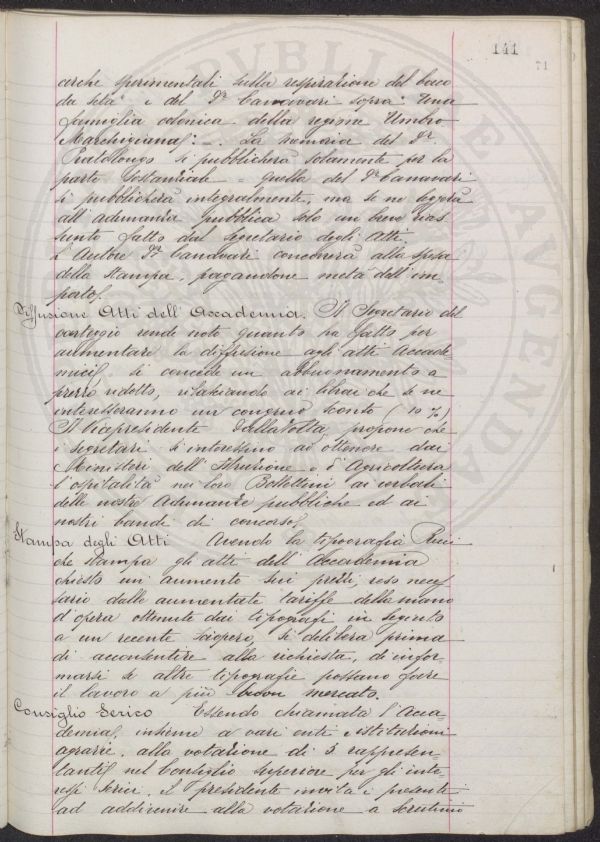 141
71
cerche sperimentali sulla respirazione del baco
da seta" e del Dr Canavari sopra "Una
famiglia colonica della regione Umbro
Marchigiana". La memoria del Dr
Pratolongo si pubblicherà solamente per la
parte sostanziale - quella del Dr Canavari
si pubblicherà integralmente, ma se ne leggerà
all'adunanza pubblica solo un breve rias
sunto fatto dal Segretario degli Atti.
L'Autore Dr Canavari concorrerà alla spesa
della stampa, pagandone metà dell'im
porto.
Diffusione Atti dell'Accademia. Il Segretario del
carteggio rende noto quanto ha fatto per
aumentare la diffusione agli atti Accade-
mici, si concede un abbuonamento a
prezzo ridotto, rilasciando ai librai che se ne
interesseranno un congruo sconto (10%)
Il Vicepresidente DallaVolta propone che
i segretari si interessino ad ottenere dai
Ministeri dell'Istruzione e d'Agricoltura
l'ospitalità nei loro Bollettini ai verbali
delle nostre Adunanze pubbliche ed ai
nostri bandi di concorso.
Stampa degli Atti Avendo la tipografia Ricci
che stampa gli atti dell'Accademia
chiesto un aumento sui prezzi, reso neces
sario dalle aumentate tariffe della mano
d'opera ottenute dai tipografi in seguito
a un recente sciopero, si delibera prima
di acconsentire alla richiesta, di infor-
marsi se altre tipografie possano fare
il lavoro a più buon mercato.
Consiglio Serico Essendo chiamata l'Acca-
demia, insieme a vari enti e istituzioni
agrarie, alla votazione di 3 rappresen-
tanti nel Consiglio superiore per gli inte-
ressi serici, il presidente invita i presenti
ad addivenire alla votazione a scrutinio
PVBLICAE
AVGENDAE